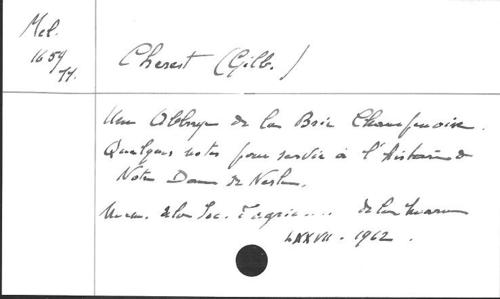 Mel.
1659
77.
Cherest (Gilb.)
Une Abbaye de la Brie Champenoise.
Quelques notes pour servir à l'histoire de
Notre Dame de Nesle.
Mém. de la Soc. d'agric... de la Marne
LXXVII - 1962.